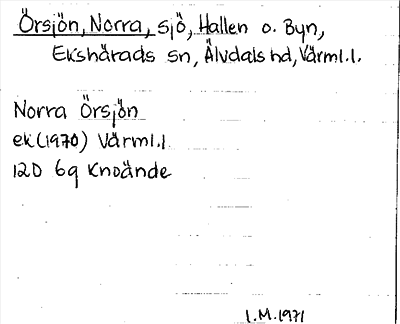 Örsjön, Norra, sjö, Hallen o. Byn,
Ekshärads sn, Älvdals hd, Värml.l.
Norra Örsjön
ek (1970) Värml.l.
12D 6g Knoände
I.M.1971